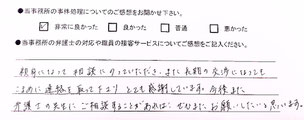 ●当事務所の事件処理についてのご感想をお聞かせ下さい。
☑非常に良かった　□良かった　□普通　□悪かった
●当事務所の弁護士の対応や職員の接客サービスについてご感想をご記入ください。
親身になって相談にのっていただき、また長期の交渉になっても
こまめに連絡を取って下さりとても感謝しています。今後また
弁護士の先生にご相談することがあれば、ぜひまたお願いしたいと思います。